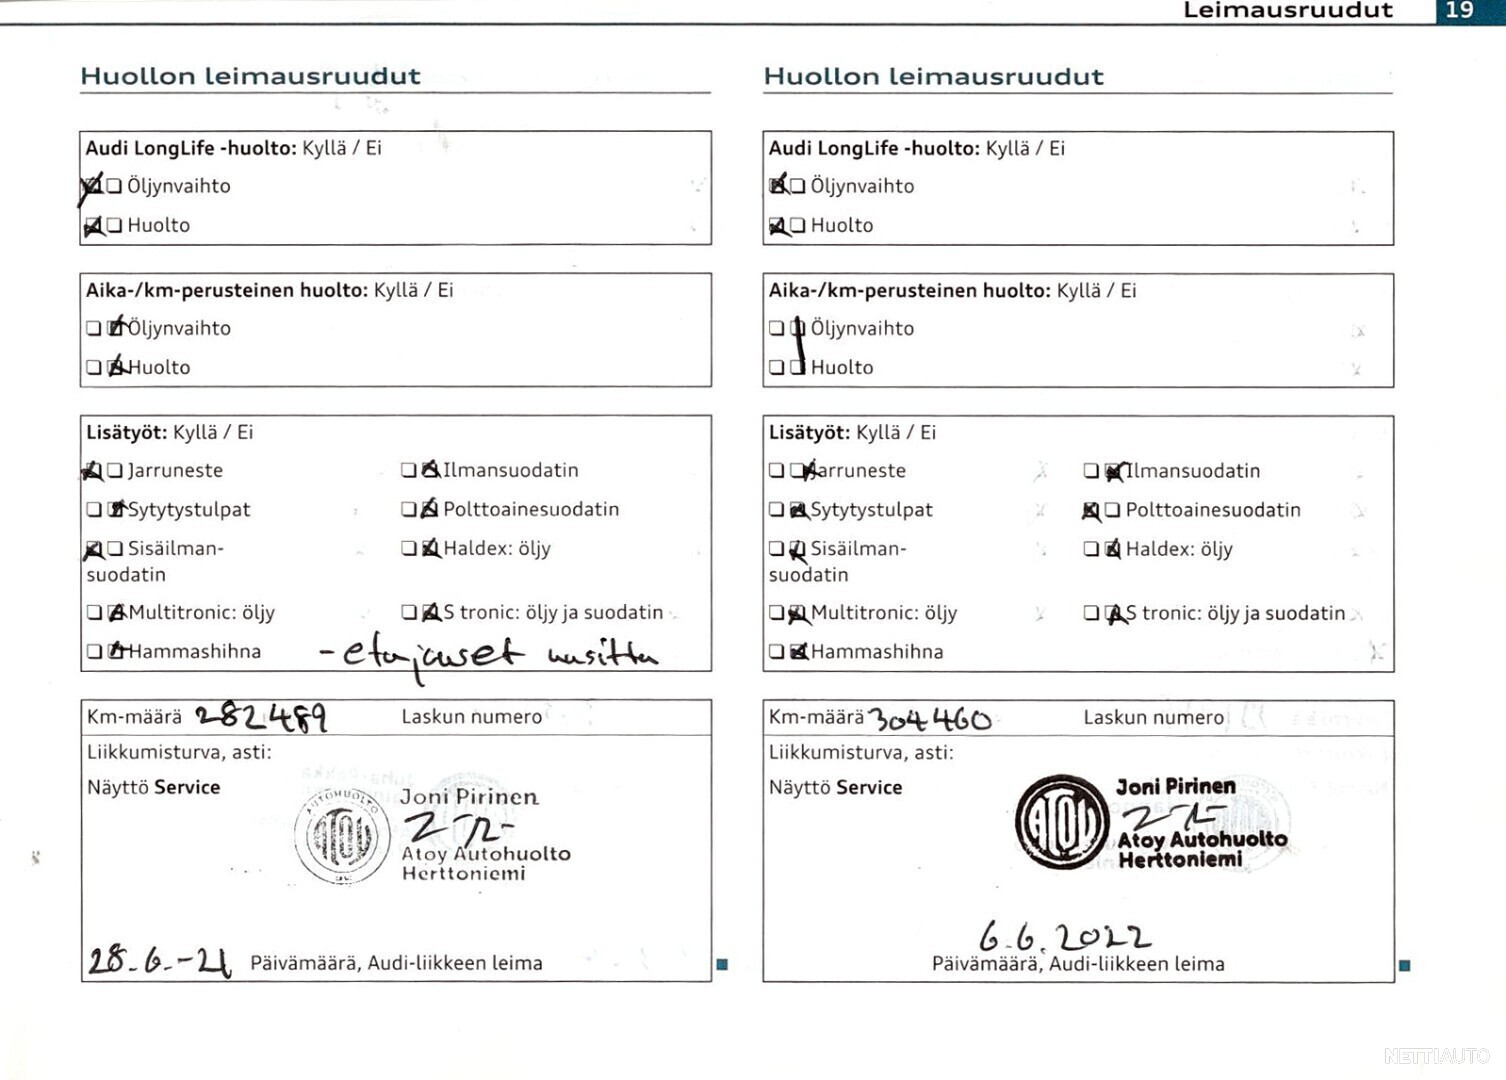 Leimausruudut 19
Huollon leimausruudut
Audi LongLife -huolto: Kyllä / Ei
Öljynvaihto
Huolto
Aika-/km-perusteinen huolto: Kyllä / Ei
Öljynvaihto
Huolto
Lisätyöt: Kyllä / Ei
Jarruneste Ilmansuodatin
Sytytystulpat Polttoainesuodatin
Sisäilman- Haldex: öljy
suodatin
Multitronic: öljy S tronic: öljy ja suodatin
Hammashihna - etujouset uusittu
Km-määrä 282489 Laskun numero
Liikkumisturva, asti:
Näyttö Service
AUTOHUOLTO
ATOY
Joni Pirinen
Atoy Autohuolto
Herttoniemi
28.6.-21 Päivämäärä, Audi-liikkeen leima
Huollon leimausruudut
Audi LongLife -huolto: Kyllä / Ei
Öljynvaihto
Huolto
Aika-/km-perusteinen huolto: Kyllä / Ei
Öljynvaihto
Huolto
Lisätyöt: Kyllä / Ei
Jarruneste Ilmansuodatin
Sytytystulpat Polttoainesuodatin
Sisäilman- Haldex: öljy
suodatin
Multitronic: öljy S tronic: öljy ja suodatin
Hammashihna
Km-määrä 304460 Laskun numero
Liikkumisturva, asti:
Näyttö Service
ATOY
Joni Pirinen
Atoy Autohuolto
Herttoniemi
6.6.2022
Päivämäärä, Audi-liikkeen leima
NETTIAUTO